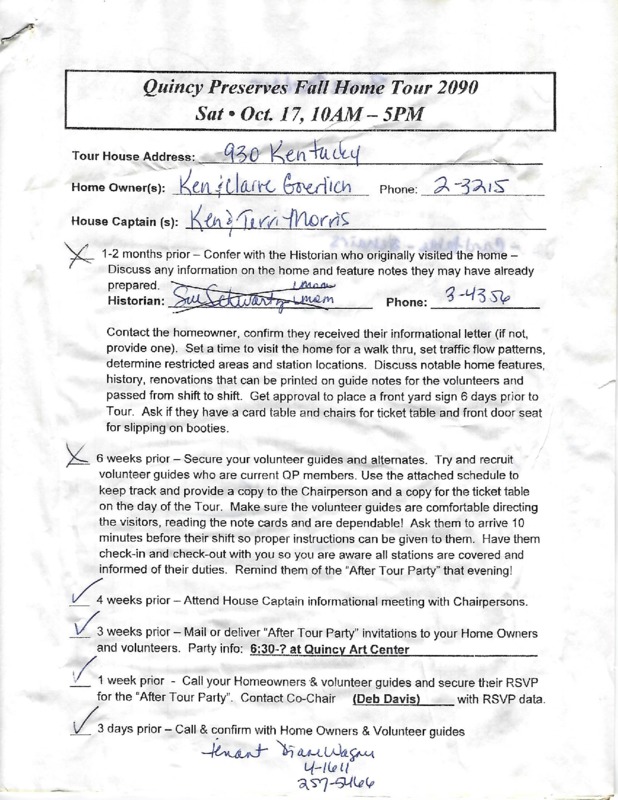 Quincy Preserves Fall Home Tour 2090
Sat • Oct. 17, 10AM – 5PM
Tour House Address: 930 Kentucky
Home Owner(s): Ken & Claire Goerlich Phone: 2-3215
House Captain (s): Ken & Terri Morris
1-2 months prior – Confer with the Historian who originally visited the home –
Discuss any information on the home and feature notes they may have already
prepared.
Historian: Sue Schwartzman Phone: 3-4356
Contact the homeowner, confirm they received their informational letter (if not,
provide one). Set a time to visit the home for a walk thru, set traffic flow patterns,
determine restricted areas and station locations. Discuss notable home features,
history, renovations that can be printed on guide notes for the volunteers and
passed from shift to shift. Get approval to place a front yard sign 6 days prior to
Tour. Ask if they have a card table and chairs for ticket table and front door seat
for slipping on booties.
6 weeks prior – Secure your volunteer guides and alternates. Try and recruit
volunteer guides who are current QP members. Use the attached schedule to
keep track and provide a copy to the Chairperson and a copy for the ticket table
on the day of the Tour. Make sure the volunteer guides are comfortable directing
the visitors, reading the note cards and are dependable! Ask them to arrive 10
minutes before their shift so proper instructions can be given to them. Have them
check-in and check-out with you so you are aware all stations are covered and
informed of their duties. Remind them of the "After Tour Party" that evening!
4 weeks prior – Attend House Captain informational meeting with Chairpersons.
3 weeks prior – Mail or deliver "After Tour Party" invitations to your Home Owners
and volunteers. Party info: 6:30-? at Quincy Art Center
1 week prior - Call your Homeowners & volunteer guides and secure their RSVP
for the "After Tour Party". Contact Co-Chair (Deb Davis) with RSVP data.
3 days prior – Call & confirm with Home Owners & Volunteer guides
tenant Diane Wagner
4-1611
257-5466